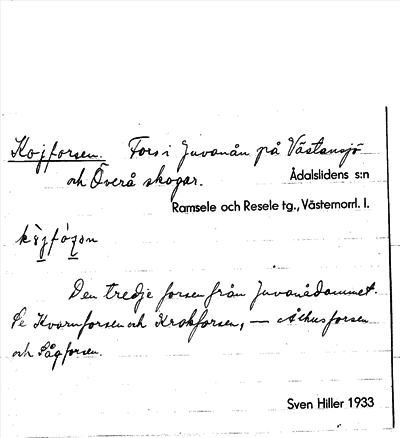 Kojforsen. Fors i Juvanån på Västansjö
och Överå skogar. Ådalslidens s:n
Ramsele och Resele tg., Västernorrl. l.
Den tredje forsen från Juvanådammet.
Se Kvarnforsen och Krokforsen, — Ålhusforsen
och Sågforsen.
Sven Hiller 1933